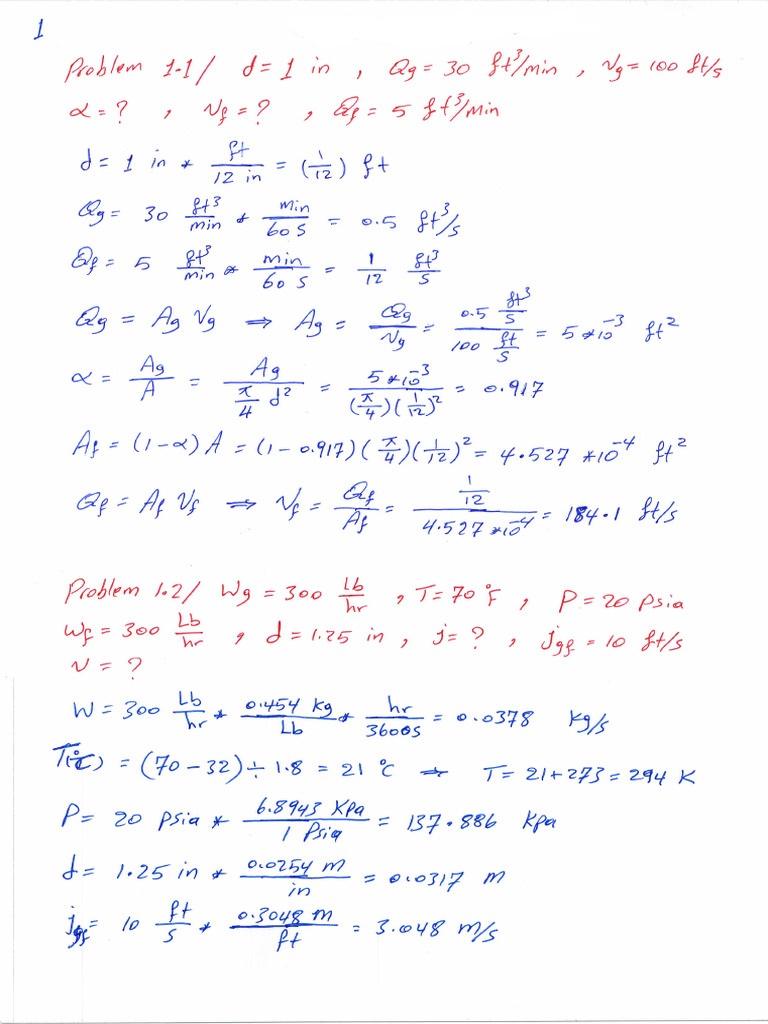 1
Problem 1.1/ d = 1 in , Qg = 30 ft³/min , Vg = 100 ft/s
α = ? , Vf = ? , Qf = 5 ft³/min
d = 1 in * ft/12 in = (1/12) ft
Qg = 30 ft³/min * min/60 s = 0.5 ft³/s
Qf = 5 ft³/min * min/60 s = 1/12 ft³/s
Qg = Ag Vg ⇒ Ag = Qg/Vg = 0.5 ft³/s / 100 ft/s = 5*10⁻³ ft²
α = Ag/A = Ag / (π/4 d²) = 5*10⁻³ / (π/4)(1/12)² = 0.917
Af = (1-α) A = (1-0.917)(π/4)(1/12)² = 4.527 *10⁻⁴ ft²
Qf = Af Vf ⇒ Vf = Qf/Af = 1/12 / 4.527*10⁻⁴ = 184.1 ft/s
Problem 1.2/ Wg = 300 Lb/hr , T = 70 °F , P = 20 psia
Wf = 300 Lb/hr , d = 1.25 in , j = ? , jgf = 10 ft/s
V = ?
W = 300 Lb/hr * 0.454 Kg/Lb * hr/3600s = 0.0378 Kg/s
T(°C) = (70-32) ÷ 1.8 = 21 °C ⇒ T = 21+273 = 294 K
P = 20 psia * 6.8943 Kpa/1 Psia = 137.886 Kpa
d = 1.25 in * 0.0254 m/in = 0.0317 m
jgf = 10 ft/s * 0.3048 m/ft = 3.048 m/s